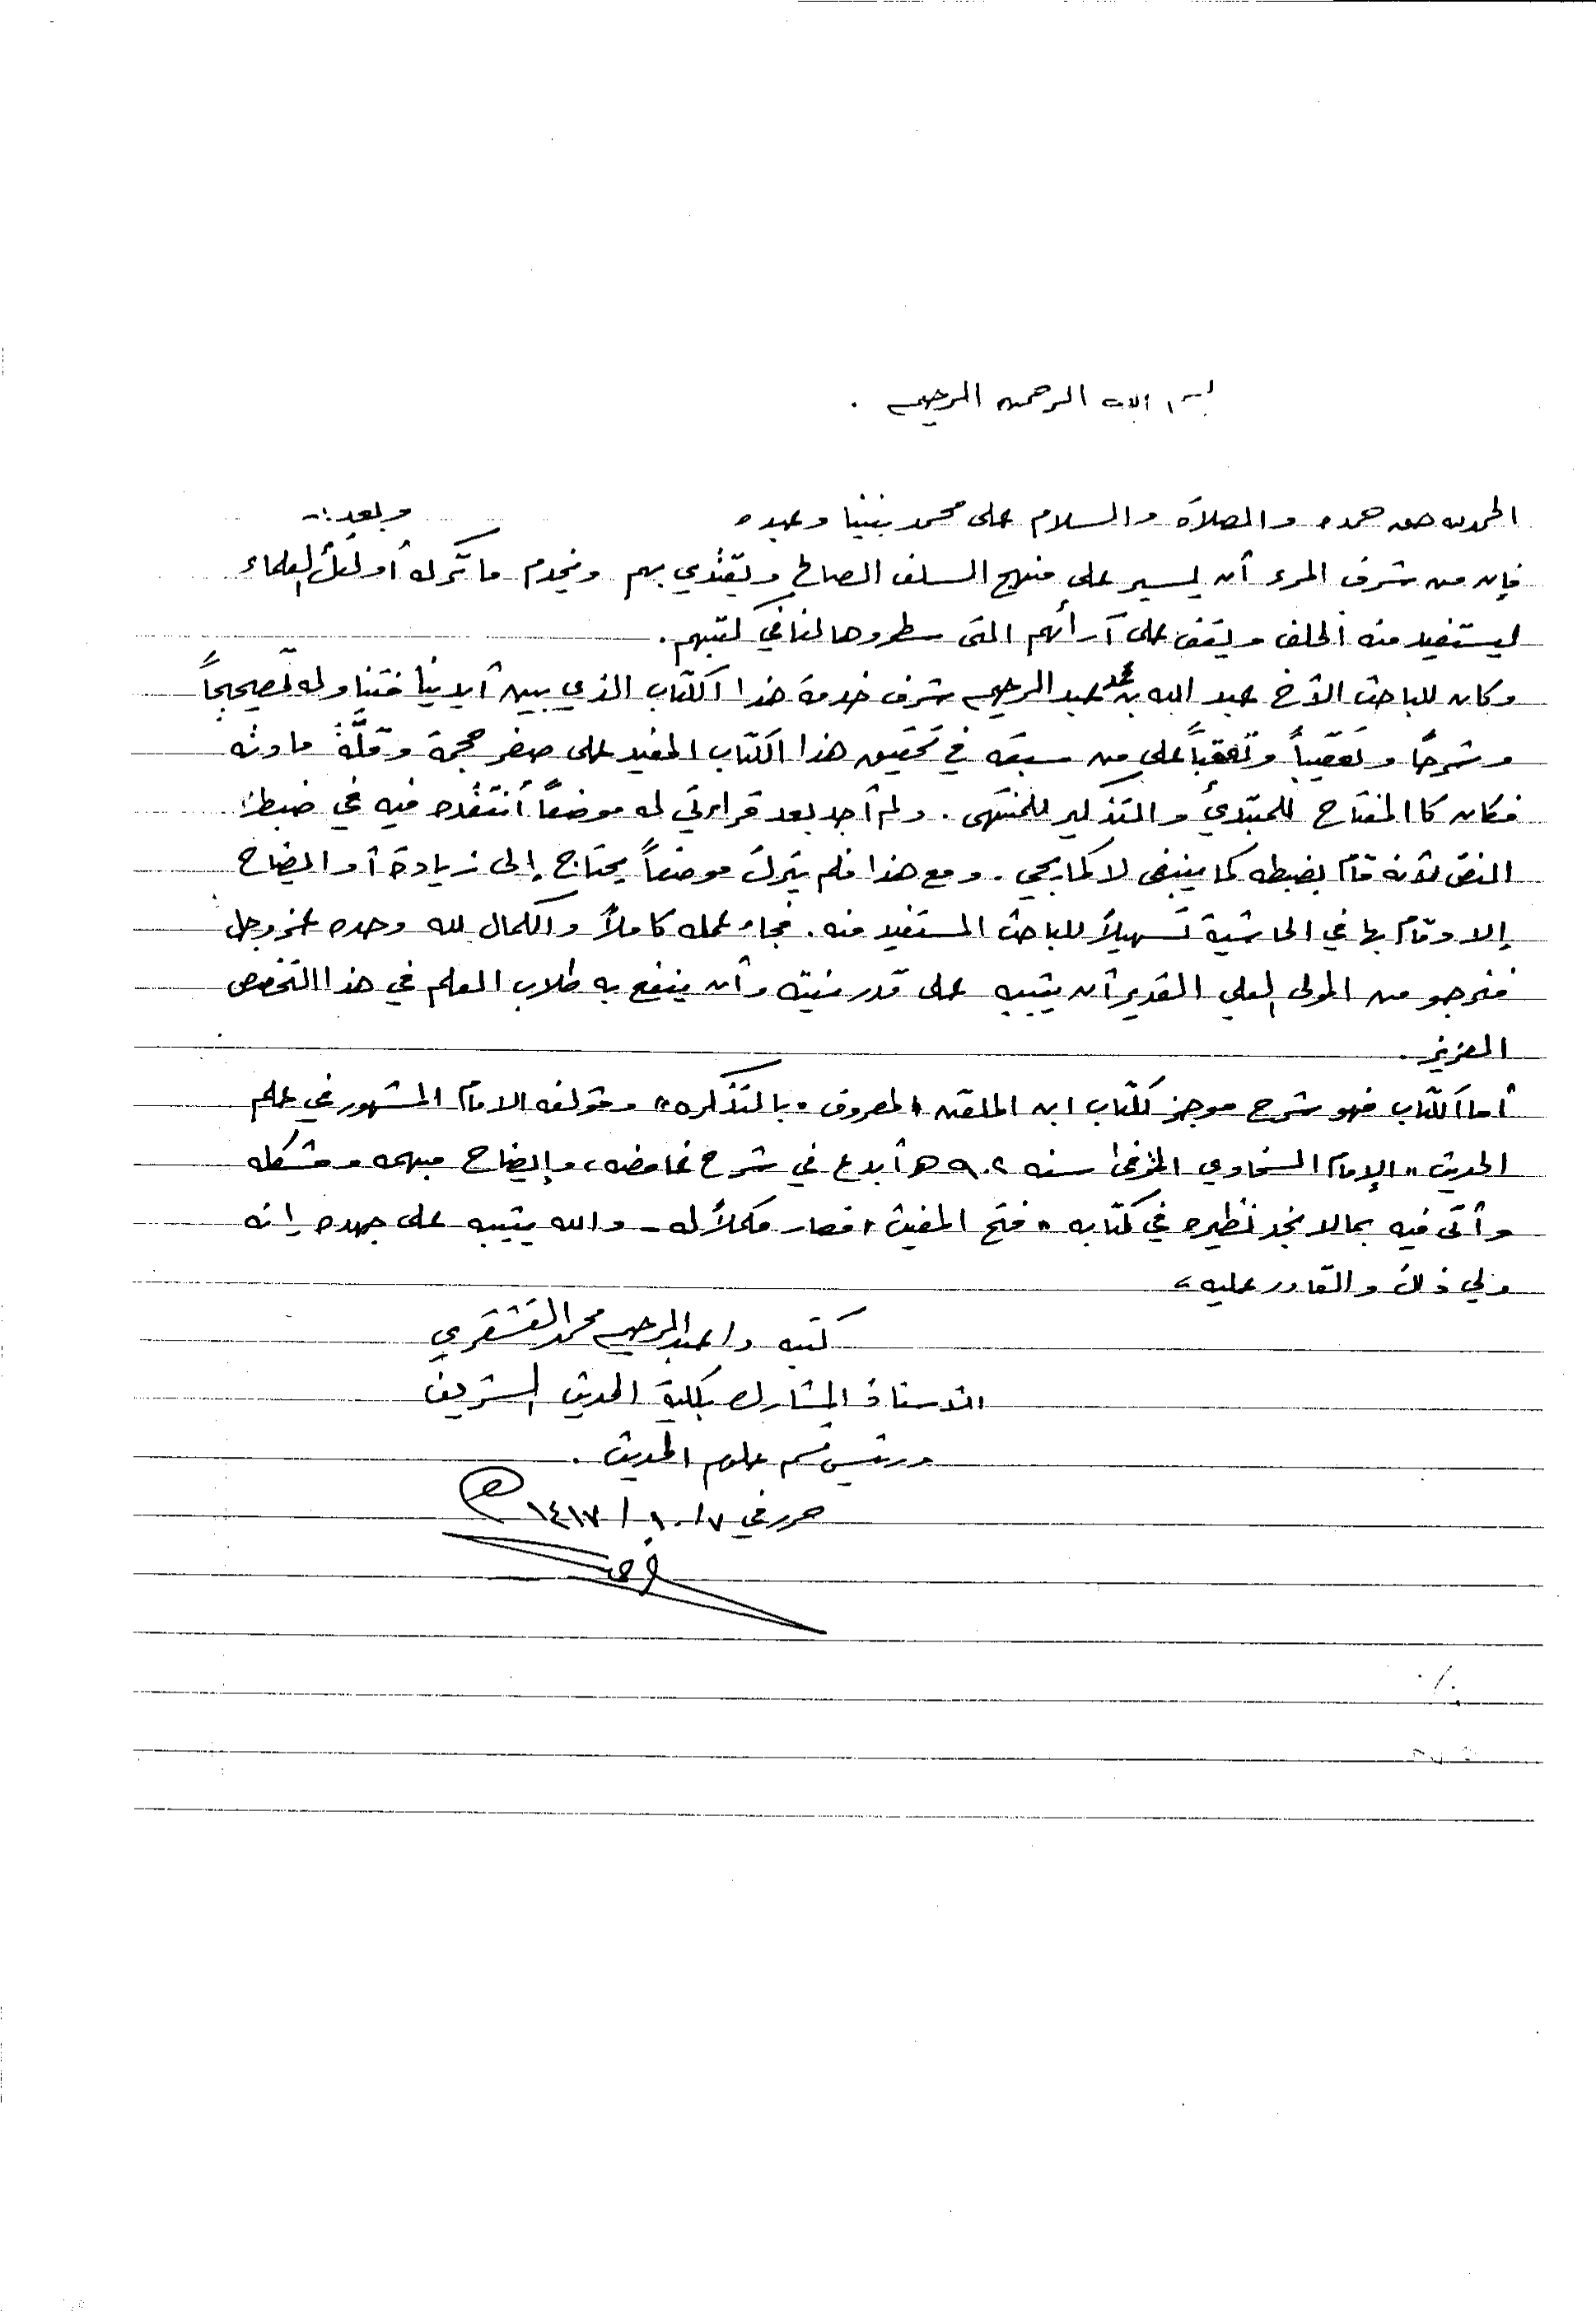 بسم الله الرحمن الرحيم .
الحمد لله حق حمده والصلاة والسلام على محمد نبينا وعبده وبعد :-
فإن من شرف المرء أن يسير على منهج السلف الصالح ويقتدي بهم ويخدم ما تركه أولئك العلماء
ليستفيد منه الخلف ويقف على آرائهم التي سطروها لنا في كتبهم .
وكان للباحث الأخ عبد الله بن محمد عبد الرحيم شرف خدمة هذا الكتاب الذي بين أيدينا فتناوله تصحيحاً
وشرحاً وتعقيباً وتعقباً على من سبقه في تحقيق هذا الكتاب المفيد على صغر حجمه وقلَّة مادته
فكان كالمفتاح للمبتدئ والتذكير للمنتهى . ولم أجد بعد قراءتي له موضعاً أنتقده فيه في ضبط
النص لأنه قام بضبطه كما ينبغي لا كما يجي . ومع هذا فلم يترك موضعاً يحتاج إلى زيادة أو ايضاح
إلا وقام بها في الحاشية تسهيلاً للباحث المستفيد منه . فجاء عمله كاملاً والكمال لله وحده عز وجل
فنرجو من المولى العلي القدير أن يثيبه على قدر نيته وأن ينفع به طلاب العلم في هذا التخصص
العزيز .
أما الكتاب فهو شرح موجز لكتاب ابن الملقن المعروف "بالتذكره" ومؤلفه الامام المشهور في علم
الحديث "الإمام السخاوي المتوفى سنه ٩٠٢ هـ أبدع في شرح غامضه ، وإيضاح مبهمه ومشكله
وأتى فيه بما لا نجد نظيره في كتابه "فتح المغيث" فصار مكملاً له - والله يثيبه على جهده إنه
ولي ذلك والقادر عليه ،
كتبه د/ عبد الرحيم محمد القشقري
الأستاذ المشارك بكلية الحديث الشريف
ورئيس قسم علوم الحديث .
حرر في ١٤١٧/١٠/٧ هـ